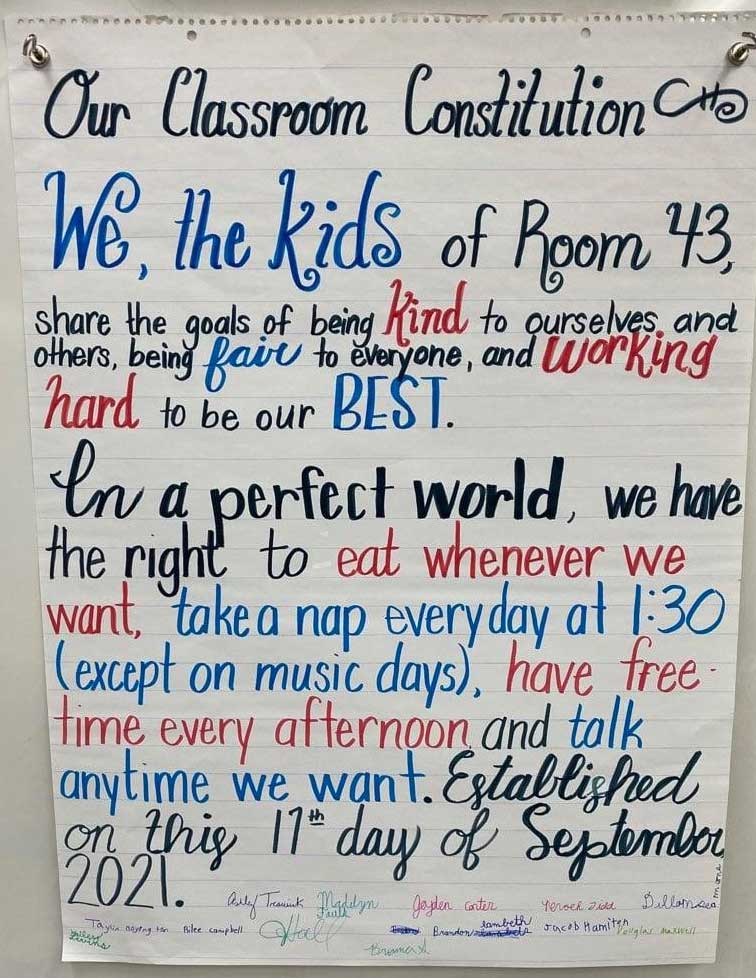 Our Classroom Constitution
We, the kids of Room 43,
share the goals of being kind to ourselves and
others, being fair to everyone, and working
hard to be our BEST.
In a perfect world, we have
the right to eat whenever we
want, take a nap everyday at 1:30
(except on music days), have free-
time every afternoon and talk
anytime we want. Established
on this 17th day of September,
2021.
Madilyn
Jayden carter
Rilee campbell
Hall
Brandon lambeth
Jacob Hamilton
Douglas maxwell